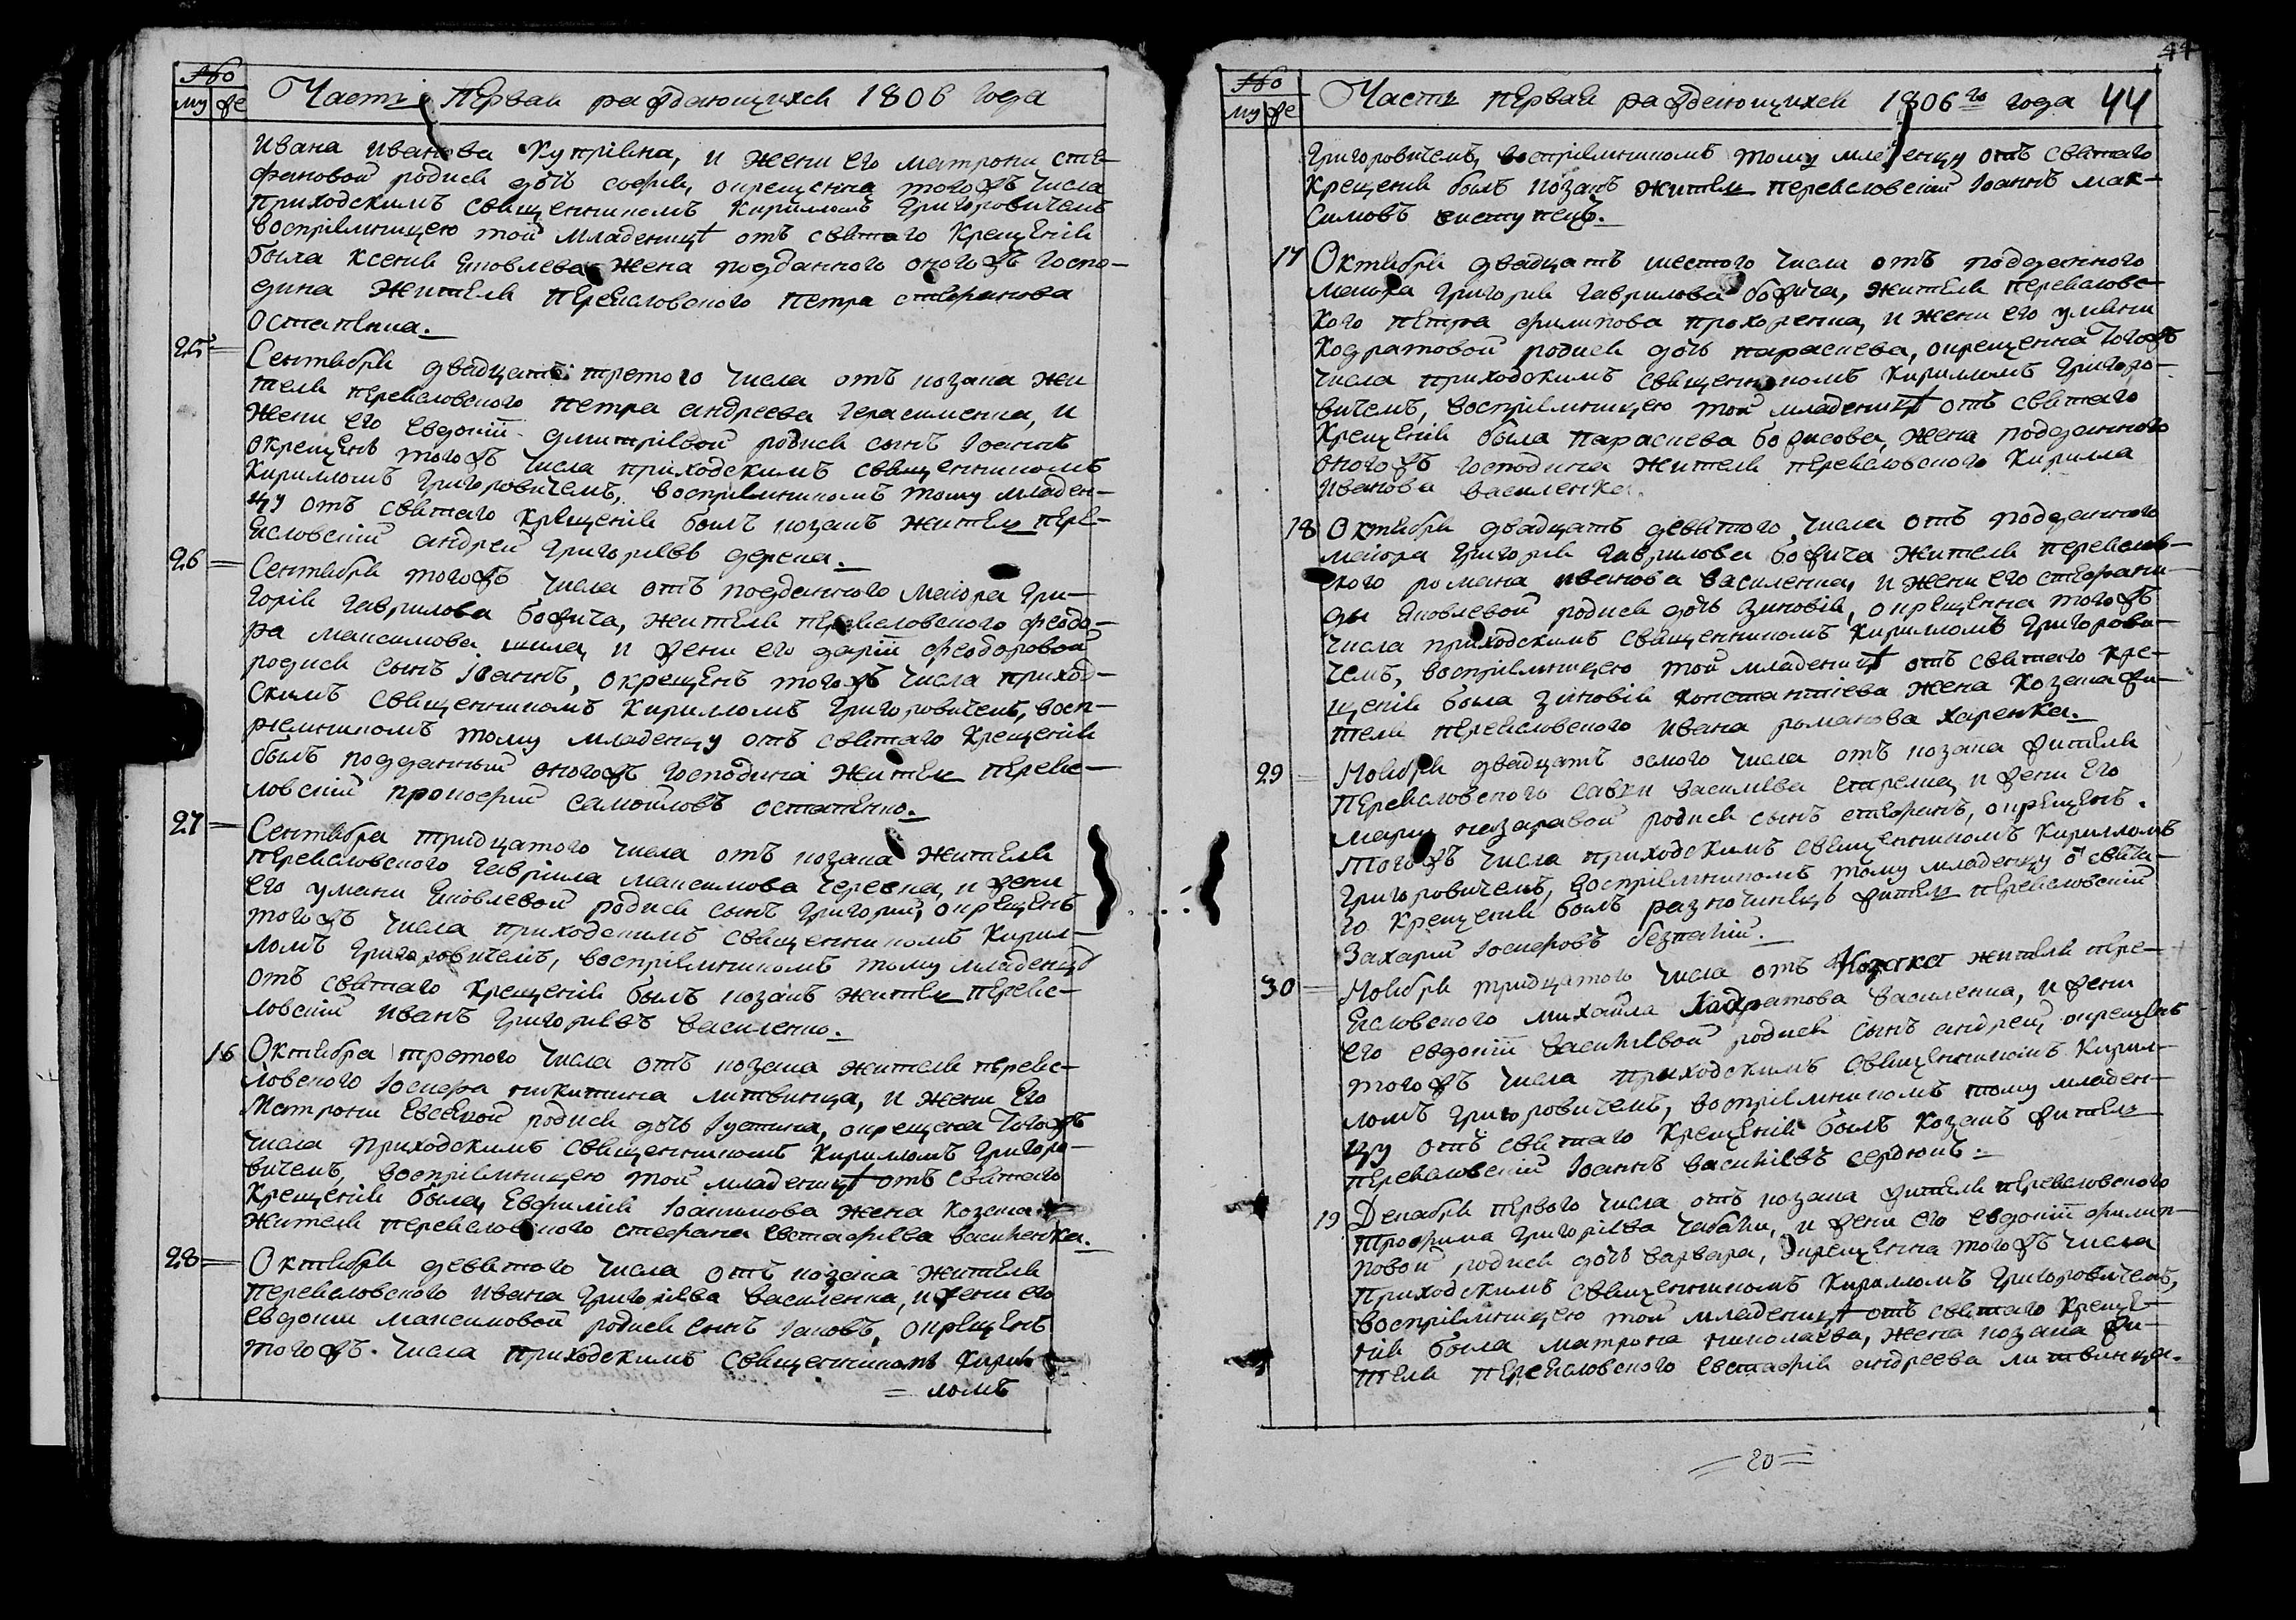 №
му же
Часть первая раждающихся 1806 года
Ивана иванова Купрiяна, и жени его матрони сте-
фановой родися дочь софiя, окрещенна того жъ числа
приходскимъ священникомъ Кирилломъ Григоровичемъ
воспрiемницею той младеницѣ отъ святаго Крещенiя
была Ксенiя яковлева жена подданного оного жъ госпо-
дина жителя переясловского петра стефанова
остапенка.
25 Сентября двадцать третого числа отъ козака жи
теля переясловского петра андреева герасименка, и
жени его евдокiи дмитрiевой родися сынъ Iоаннъ
окрещенъ того жъ числа приходскимъ священникомъ
Кирилломъ Григоровичемъ, воспрiемникомъ тому младен-
цу отъ святаго крещенiя былъ козакъ житель пере-
ясловскiй андрей григорiевъ дерека.
26 Сентября того жъ числа отъ подданного маiора Гри-
горiя гаврилова божича, жителя переясловского феодо-
ра максимова шила, и жени его дарiи феодоровой
родися сынъ Iоаннъ, окрещенъ того жъ числа приход-
скимъ священникомъ Кирилломъ Григоровичемъ, восп-
рiемникомъ тому младенцу отъ святаго Крещенiя
былъ подданный оного жъ господина житель переяс-
ловскiй прокофiй самойловъ остапенко.
27 Сентября тридцатого числа отъ козака жителя
переясловского гаврiила максимова черевка, и жени
его уляни яковлевой родися сынъ григорiй, окрещенъ
того жъ числа приходскимъ священникомъ Кирил-
ломъ Григоровичемъ, воспрiемникомъ тому младенцу
отъ святаго Крещенiя былъ козакъ житель переяс-
ловскiй Иванъ григорiевъ василенко.
16 Октября третого числа отъ козака жителя переяс-
ловского Iосифа никитина литвинца, и жени его
Матрони Евсеевой родися дочь Iустина, окрещена того жъ
числа приходскимъ священникомъ Кирилломъ Григоро-
вичемъ, воспрiемницею той младеницѣ отъ святаго
Крещенiя была, Евфимiя Iоакимова жена козака
жителя переясловского стефана евстафiева василенка.
28 Октября девятого числа отъ козака жителя
переясловского ивана григорiева василенка, и жени его
евдокiи максимовой родися сынъ Iаковъ, окрещенъ
того жъ числа приходскимъ священникомъ Кирил
= ломъ
44
№
му же
Часть первая раждающихся 1806го года 44
Григоровичемъ, воспрiемникомъ тому младенцу отъ святаго
Крещенiя былъ козакъ житель переясловскiй Iоаннъ мак-
симовъ
17 Октября двадцать шестого числа отъ подданного
маiора григорiя гаврилова божича, жителя переясловс-
кого петра филипова прохоренка, и жени его уляни
кодратовой родися дочь параскева, окрещенна того жъ
числа приходскимъ священникомъ Кирилломъ Григоро-
вичемъ, воспрiемницею той младеницѣ отъ святаго
Крещенiя была параскева борисова, жена подданного
оного жъ господина жителя переясловского Кирилла
Иванова василенка.
18 Октября двадцать девятого, числа отъ подданного
маiора григорiя гаврилова божича жителя переяслов-
ского романа иванова василенка, и жени его стефани-
ды яковлевой родися дочь зиновiя, окрещенна того жъ
числа приходскимъ священникомъ Кирилломъ Григорови-
чемъ, воспрiемницею той младеницѣ отъ святаго кре-
щенiя была зиновiя константiева жена козака жи-
теля переясловского ивана романова харенка.
29 Ноября двадцать осмого числа отъ козака жителя
переясловского савки василiева стрелца, и жени его
марiи назаравой родися сынъ стефанъ, окрещенъ
того жъ числа приходскимъ священникомъ Кирилломъ
Григоровичемъ, воспрiемникомъ тому младенцу о свята-
го Крещенiя былъ разночинецъ житель переясловскiй
Захарiй Iосифовъ безпалiй.
30 Ноября тридцатого числа отъ козака жителя пере-
ясловского михаила кодратова василенка, и жени
его евдокiи василiевой родися сынъ андрей, окрещенъ
того жъ числа приходскимъ священникомъ Кирил-
ломъ Григоровичемъ, воспрiемникомъ тому младен-
цу отъ святаго Крещенiя былъ козакъ житель
переясловскiй Iоаннъ василiевъ сердюкъ.
19 Декабря первого числа отъ козака жителя переясловского
трофима григорiева чабана, и жени его евдокiи филип-
повой родися дочь варвара, окрещенна того жъ числа
приходскимъ священникомъ Кирилломъ Григоровичемъ,
воспрiемницею той младеницѣ отъ святаго Креще-
нiя была матрона николаева, жена козака жи-
теля переясловского евстафiя андреева литвинца.
= 20 =